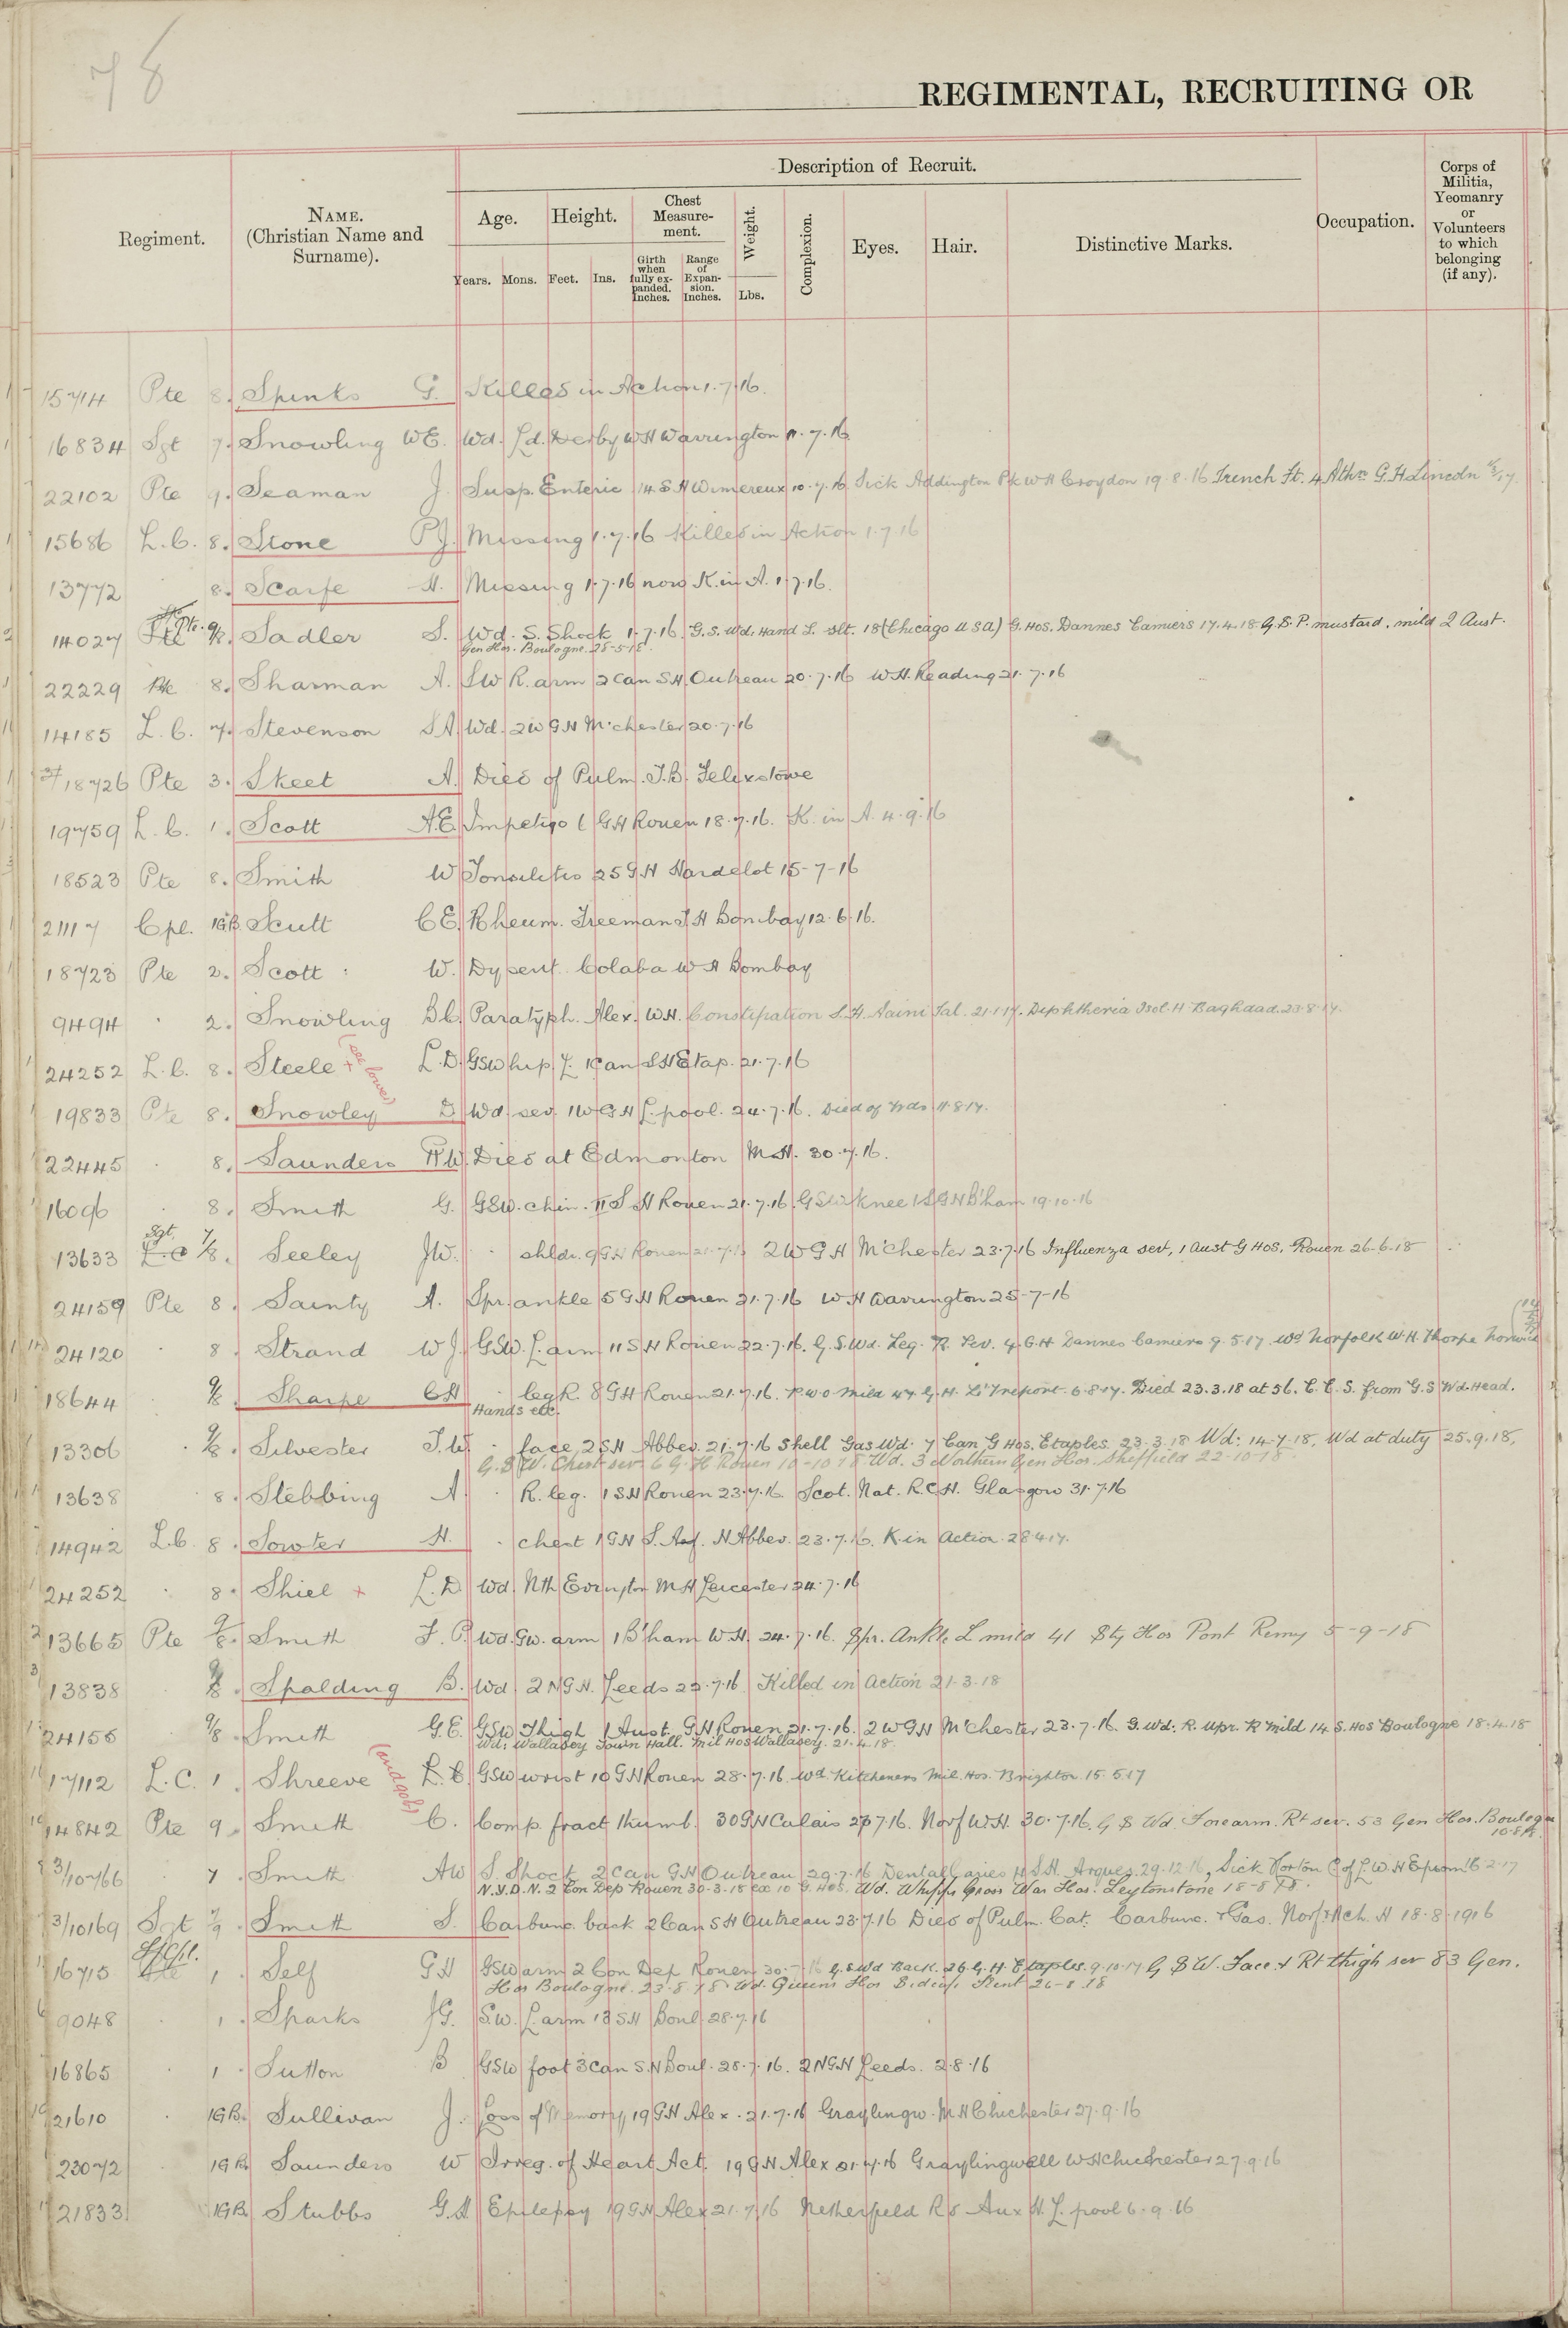 78
REGIMENTAL, RECRUITING OR
Description of Recruit.
Regiment.
NAME. (Christian Name and Surname).
Age.
Height.
Chest Measure-ment.
Weight.
Complexion.
Eyes.
Hair.
Distinctive Marks.
Occupation.
Corps of Militia, Yeomanry or Volunteers to which belonging (if any).
Years.
Mons.
Feet.
Ins.
Girth when fully ex-panded. Inches.
Range of Expan-sion. Inches.
Lbs.
15714 Pte 8. Spinks G. Killed in Action 1.7.16.
16834 Sgt 7. Snowling WE. Wd. Ld. Derby WH Warrington 11.7.16
22102 Pte 9. Seaman J. Susp. Enteric 14 S H Wimereux 10.7.16 Sick Addington Pk W H Croydon 19.8.16 Trench Ft. 4 Nthn G.H. Lincoln
15686 L.C. 8. Stone PJ. Missing 1.7.16 Killed in Action 1.7.16
13772 8. Scarfe H. Missing 1.7.16 now K. in A. 1.7.16.
14027 Pte. 9/8. Sadler S. Wd. S. Shock 1.7.16. G.S. Wd. Hand L. slt. 18 (Chicago U S A) G. Hos. Dannes Camiers 17.4.18 G.S.P. mustard, mild 2 Aust.
Gen Hos. Boulogne 28-5-18.
22229 Pte 8. Sharman A. SW R. arm 2 Can SH. Outreau 20.7.16 W.H. Reading 21.7.16
14185 L.C. 7. Stevenson SA. Wd. 2W G H M'chester 20.7.16
18726 Pte 3. Skeet A. Died of Pulm. T.B. Felixstowe
19759 L.C. 1. Scott A.E. Impetigo 6 GH Rouen 18.7.16. K. in A. 4.9.16
18523 Pte 8. Smith W Tonsilitis 25 G H Hardelot 15-7-16
21117 Cpl. 1GB. Scutt CE. Rheum. Freeman T H Bombay 12.6.16.
18723 Pte 2. Scott W. Dysent. Colaba W H Bombay
9494 2. Snowling BC. Paratyph. Alex. W.H. Constipation S.H. Naini Tal. 21.1.17. Diphtheria Isol. H Baghdad 23.8.17.
24252 L.C. 8. Steele + (see lower) L.D. GSW hip L. 1 Can SH Etap. 21.7.16
19833 Pte 8. Snowley D Wd. sev. 1W G H L'pool. 24.7.16. Died of Wds 11.8.17.
22445 8. Saunders RW. Died at Edmonton M.H. 30.7.16.
16096 8. Smith G. GSW. chin. 11 S H Rouen 21.7.16. GSW knee 1 S G H B'ham 19.10.16
13633 Sgt 7/8. Seeley JW. shldr. 9 GH Rouen 21.7.16 2W G H M'Chester 23.7.16 Influenza sev, 1 Aust G Hos, Rouen 26-6-18
24159 Pte 8. Sainty A. Spr. ankle 5 G H Rouen 21.7.16 W H Warrington 25-7-16
24120 8. Strand WJ. GSW. L. arm 11 S H Rouen 22.7.16. G.S. Wd. Leg. R. Sev. 4 G.H. Dannes Camiers 9.5.17. Wd Norfolk W.H. Thorpe Norwich
18644 9/8. Sharpe CH leg R. 8 GH Rouen 21.7.16. P.W.O mild 47 G.H. Le Treport 6.8.17. Died 23.3.18 at 56. C.C.S. from G.S Wd. Head.
Hands etc.
13306 9/8. Silvester J.W. face, 2 SH Abbev. 21.7.16 Shell Gas Wd. 7 Can G Hos. Etaples 23.3.18 Wd. 14.7.18, Wd at duty 25.9.18,
G.S.W. Chest sev 6 G.H Rouen 10-10-18 Wd. 3 Northern Gen Hos. Sheffield 22-10-18.
13638 8. Stebbing A. R. leg. 1 SH Rouen 23.7.16. Scot. Nat. R.C H. Glasgow 31.7.16
14942 L.C. 8. Sowter H. chest 1 GN S. Af. H Abbev. 23.7.16. K. in Action 28.4.17.
24252 8. Shiel + L.D Wd. Nth Evington M H Leicester 24.7.16
13665 Pte 9/8. Smith F.P. Wd. GW. arm 1 B'ham W.H. 24.7.16. Spr. Ankle L mild 41 Sty Hos Pont Remy 5-9-18
13838 8. Spalding B. Wd. 2 N G.H. Leeds 23.7.16 Killed in Action 21.3.18
24156 9/8. Smith G.E. GSW Thigh 1 Aust. GH Rouen 21.7.16. 2W G H M'chester 23.7.16. G. Wd. R. Upr. R Mild 14 S. Hos Boulogne 18.4.18
Wd. Wallasey Town Hall. Mil Hos Wallasey. 21.4.18.
17112 L.C. 1. Shreeve L.C. GSW wrist 10 G H Rouen 28.7.16 Wd Kitcheners Mil. Hos. Brighton. 15.5.17
14842 Pte 9. Smith C. Comp. fract thumb. 30 G H Calais 27.7.16. Norf W.H. 30.7.16. G S Wd Forearm. Rt sev. 53 Gen Hos. Boulogne
10.8.18.
3/10766 7 Smith AW S. Shock, 2 Can GH Outreau 29.7.16 Dental Caries 14 S.H. Arques. 29.12.16, Sick Horton C of L. W.H Epsom 16.2.17
N.Y.D.N. 2 Con Dep Rouen 30-3-18 ex 10 G. Hos. Wd. Whipps Cross War Hos. Leytonstone 18-8-18.
3/10169 Sgt 7/9. Smith S. Carbunc. back 2 Can S H Outreau 23.7.16 Died of Pulm. Cat. Carbunc. & Gas. Norf & Nch. H 18.8.1916
16715 L/Cpl. 1. Self GH GSW arm 2 Con Dep Rouen 30.7.16 G.S.Wd Back. 26 G.H. Etaples. 9.10.17 G S W. Face & Rt thigh sev 83 Gen.
Hos Boulogne. 23-8-18. Wd. Queens Hos Sidcup Kent 26-8-18
9048 1. Sparks JG. S.W. L. arm 13 SH Boul 28.7.16
16865 1 Sutton B GSW foot 3 Can S.H Boul. 28.7.16. 2 N G.H Leeds. 2.8.16
21610 1GB. Sullivan J. Loss of Memory, 19 GH Alex. 21.7.16 Graylingw. M H Chichester 27.9.16
23072 1GB. Saunders W Irreg. of Heart Act. 19 G H Alex 21.7.16 Graylingwell W H Chichester 27.9.16
21833 1GB. Stubbs G.A Epilepsy 19 G H Alex 21.7.16 Netherfield Rd Aux H. L'pool 6.9.16